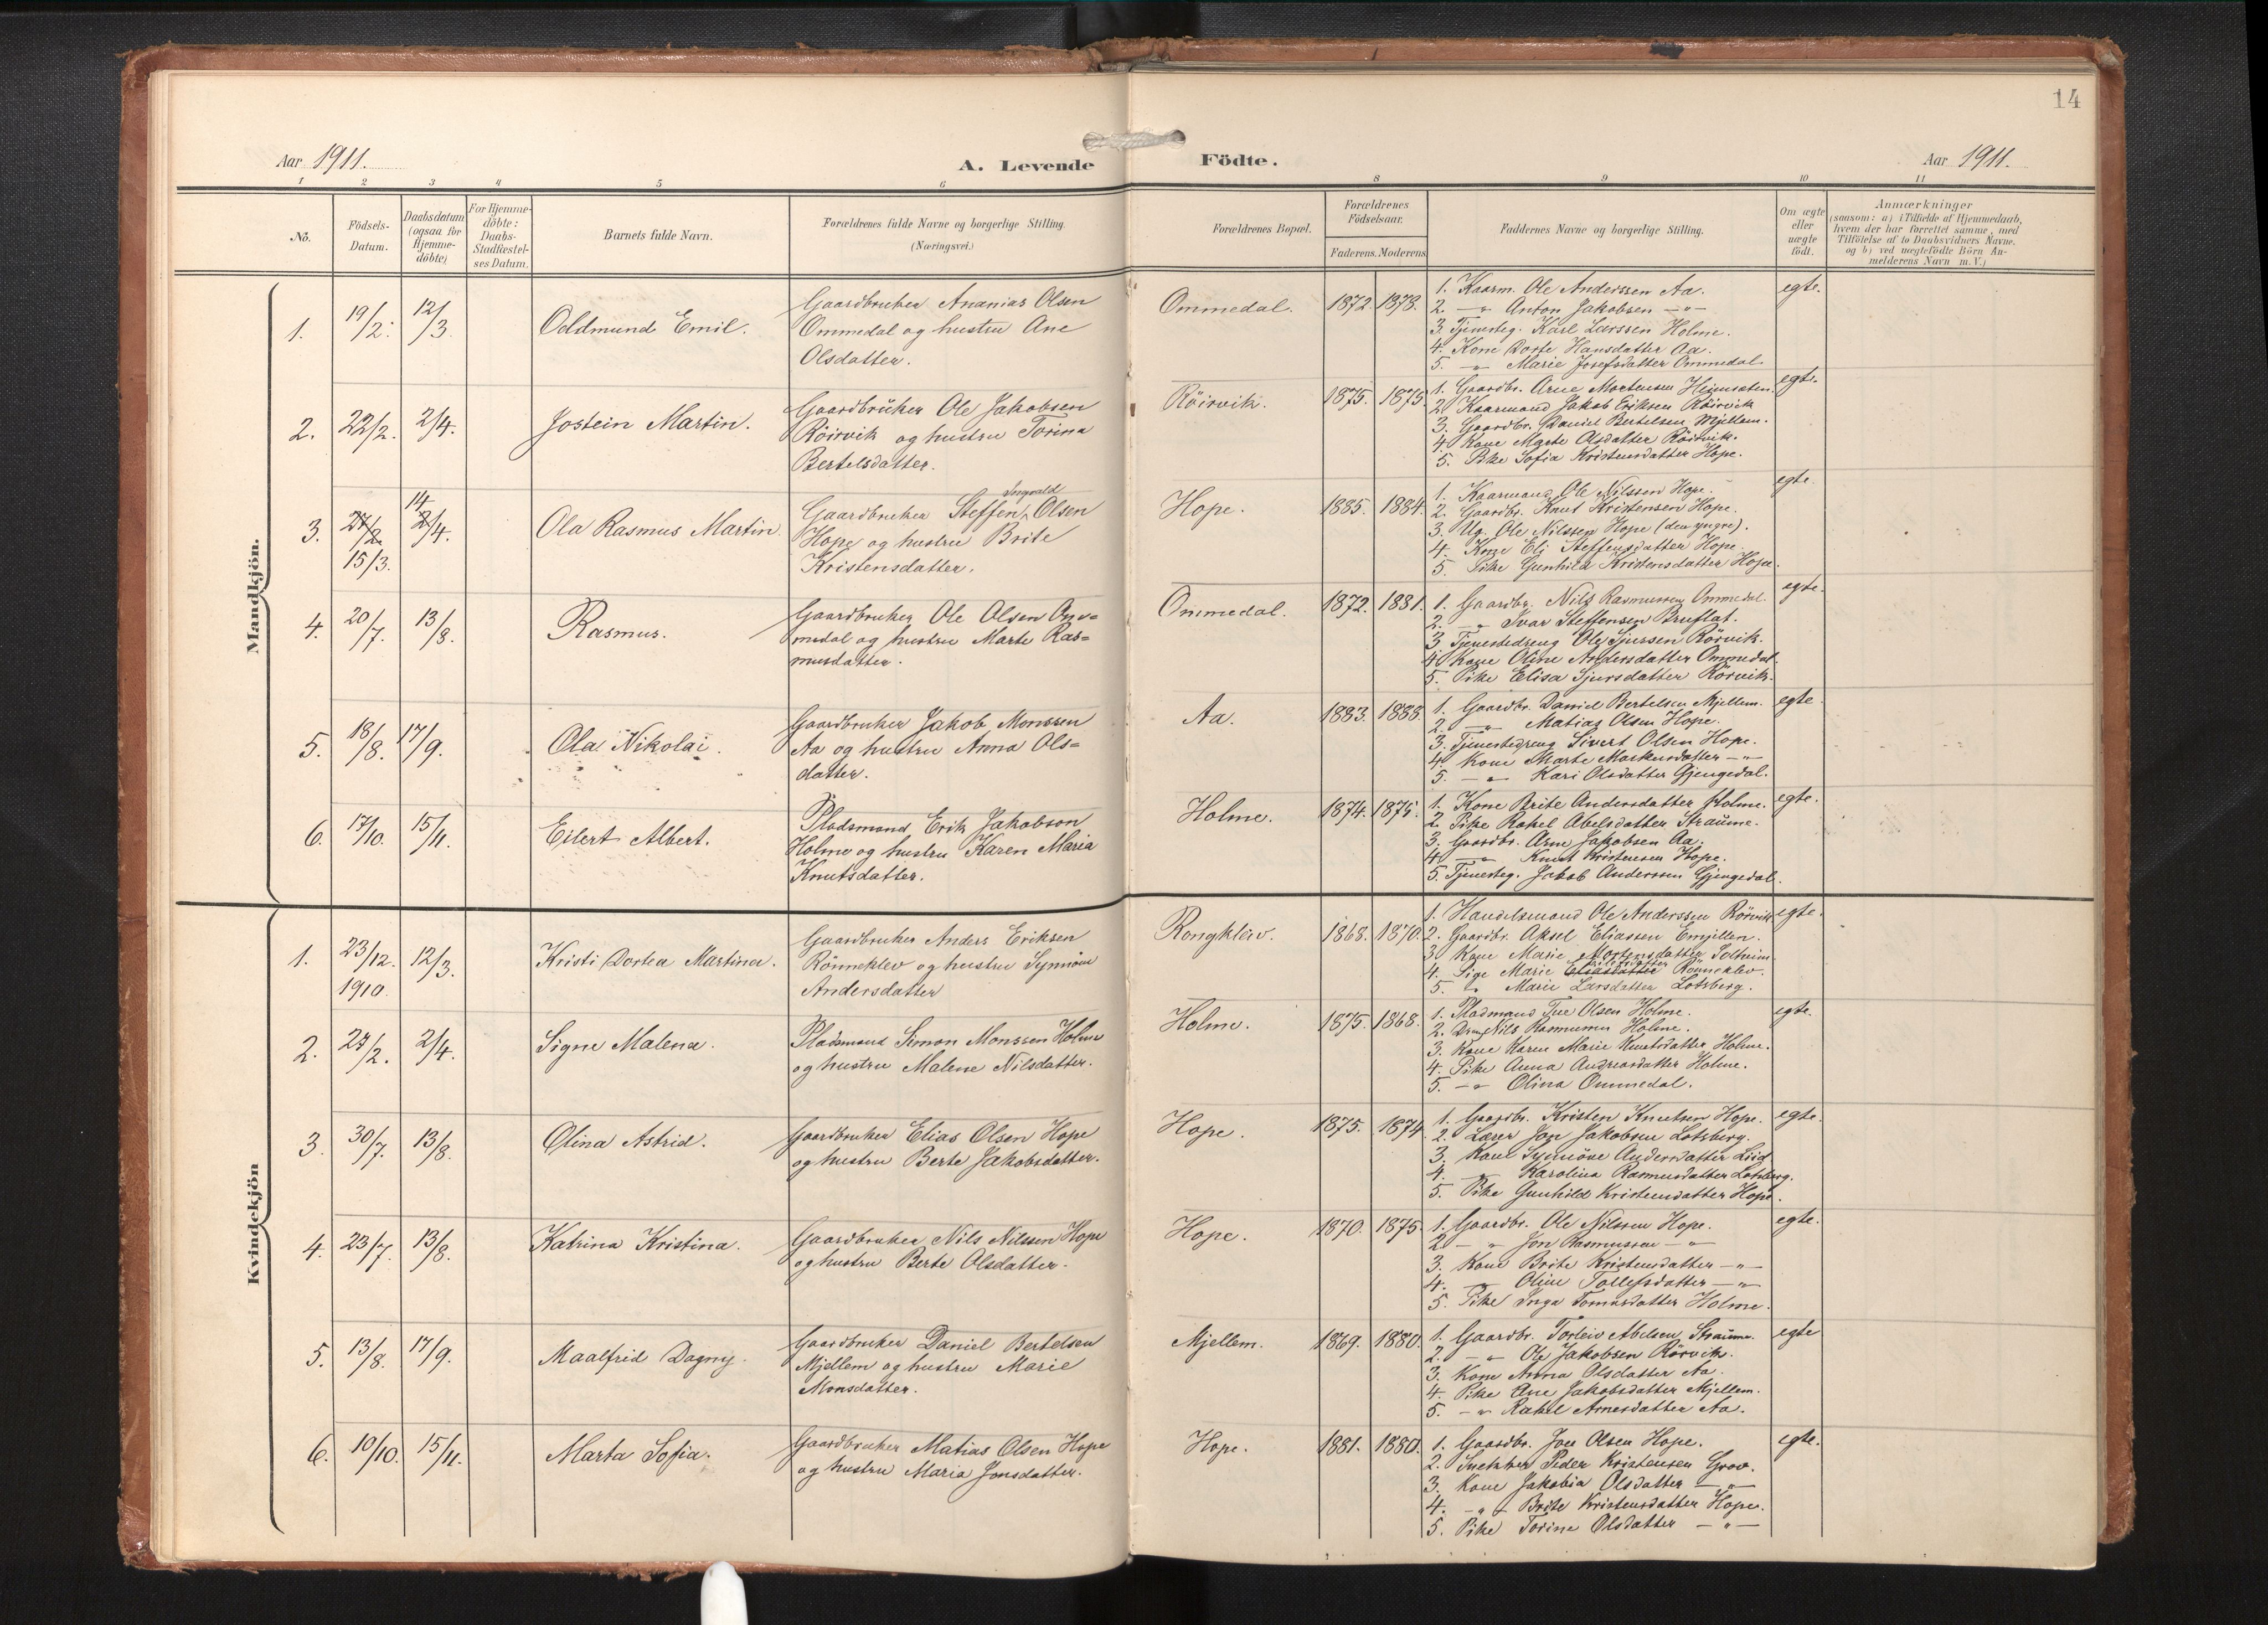 14
Aar 1911.
A. Levende Födte.
Aar 1911.
1 2 3 4 5 6 8 9 10 11
No.
Födsels-
Datum.
Daabsdatum
(ogsaa for
Hjemme-
döbte)
For Hjemme-
döbte:
Daabs-
Stadfæstel-
ses Datum.
Barnets fulde Navn.
Forældrenes fulde Navne og borgerlige Stilling.
(Næringsvei.)
Forældrenes Bopæl.
Forældrenes
Födselsaar.
Faderens. Moderens.
Faddernes Navne og borgerlige Stilling.
Om ægte
eller
uægte
födt.
Anmærkninger
(saasom: a) i Tilfælde af Hjemmedaab,
hvem der har forrettet samme, med
Tilföielse af to Daabsvidners Navne,
og b) ved uægtefödte Börn An-
melderens Navn m. V.)
Mandkjön.
1. 19/2. 12/3. Oddmund Emil.
Gaardbruker Ananias Olsen
Ommedal og hustru Ane
Olsdatter.
Ommedal. 1872. 1878.
1. Kaarm. Ole Anderssen Aa.
2. — " Anton Jakobsen — " —
3. Tjenesteg. Karl Larssen Holme.
4. Kone Dorte Hansdatter Aa.
5. — " Marie Josefsdatter Ommedal
egte.
2. 22/2. 2/4. Jostein Martin.
Gaardbruker Ole Jakobsen
Röirvik og hustru Torina
Bertelsdatter.
Röirvik. 1875. 1875.
1. Gaardbr. Arne Mortensen Heimsæten.
2. Kaarmand Jakob Eriksen Röirvik
3. Gaardbr. Daniel Bertelsen Mjellem.
4. Kone Marte Olsdatter Röirvik.
5. Pike Sofia Kristensdatter Hope.
egte.
3. 27/2 15/3. 14 2/4. Ola Rasmus Martin.
Gaardbruker Steffen Ingvald Olsen
Hope og hustru Brite
Kristensdatter.
Hope. 1885. 1884.
1. Kaarmand Ole Nilssen Hope.
2. Gaardbr. Knut Kristensen Hope.
3. Ug. Ole Nilssen Hope (den yngre).
4. Kone Eli Steffensdatter Hope.
5. Pike Gunhild Kristensdatter Hope.
egte
4. 20/7. 13/8. Rasmus.
Gaardbruker Ole Olsen Om=
medal og hustru Marte Ras=
musdatter.
Ommedal. 1872. 1881.
1. Gaardbr. Nils Rasmussen Ommedal.
2. — " Ivar Steffensen Bruflat.
3. Tjenestedreng Ole Sjurssen Rörvik.
4. Kone Oline Andersdatter Ommedal.
5. Pike Elisa Sjursdatter Rörvik.
egte.
5. 18/8. 17/9. Ola Nikolai.
Gaardbruker Jakob Monssen
Aa og hustru Anna Ols=
datter.
Aa. 1883. 1888.
1. Gaardbr. Daniel Bertelsen Mjellem.
2. — " Matias Olsen Hope.
3. Tjenestedreng Sivert Olsen Hope.
4. Kone Marte Markusdatter — " —
5. — " Kari Olsdatter Gjengedal.
egte.
6. 17/10. 15/11. Eilert Albert.
Pladsmand Erik Jakobson
Holme og hustru Karen Maria
Knutsdatter.
Holme. 1874. 1875.
1. Kone Brite Andersdatter Holme.
2. Pike Rakel Abelsdatter Straume.
3. Gaardbr. Arne Jakobsen Aa.
4. — " Knut Kristensen Hope.
5. Tjenesteg. Jakob Anderssen Gjengedal.
egte.
Kvindekjön
1. 23/12. 1910. 12/3. Kristi Dortea Martina.
Gaardbruker Anders Eriksen
Rönneklev og hustru Synnöve
Andersdatter
Rongkleiv. 1868. 1870.
1. Handelsmand Ole Anderssen Rörvik
2. Gaardbr. Aksel Eliassen Emjellen.
3. Kone Marie Mortensdatter Solheim
4. Pige Marie Eliasdatter Rönneklev.
5. " Marie Larsdatter Lotsberg.
egte.
2. 27/2. 2/4. Signe Malena.
Pladsmand Simon Monssen Holme
og hustru Malene Nilsdatter.
Holme. 1875. 1868.
1. Pladmand Tue Olsen Holme.
2. Dreng Nils Rasmussen Holme.
3. Kone Karen Marie Knutsdatter Holme.
4. Pike Anna Andreasdatter Holme.
5. — " Olina Ommedal.
egte.
3. 30/7. 13/8. Olina Astrid.
Gaardbruker Elias Olsen Hope
og hustru Berte Jakobsdatter.
Hope. 1875. 1874.
1. Gaardbr. Kristen Knutsen Hope.
2. Lærer Jon Jakobsen Lotsberg.
3. Kone Synnöve Andersdatter Liid
4. — " Karolina Rasmusdatter Lotsberg.
5. Pike Gunhild Kristensdatter Hope.
egte.
4. 23/7. 13/8. Katrina Kristina.
Gaardbruker Nils Nilssen Hope
og hustru Berte Olsdatter.
Hope. 1870. 1875.
1. Gaardbr. Ole Nilssen Hope.
2. — " Jon Rasmussen — "
3. Kone Brite Kristensdatter — " —
4. — " Oline Tollefsdatter — " —
5. Pike Inga Tomasdatter Holme.
egte.
5. 13/8. 17/9. Maalfrid Dagny.
Gaardbruker Daniel Bertelsen
Mjellem og hustru Marie
Monsdatter.
Mjellem. 1869. 1880.
1. Gaardbr. Torleiv Abelsen Straume.
2. — " Ole Jakobsen Rörvik.
3. Kone Anna Olsdatter Aa.
4. Pike Ane Jakobsdatter Mjellem.
5. — " Rakel Arnesdatter Aa.
egte
6. 10/10. 15/11. Marta Sofia.
Gaardbruker Matias Olsen Hope
og hustru Maria Jonsdatter.
Hope. 1881. 1880.
1. Gaardbr. Joen Olsen Hope.
2. Snekker Peder Kristensen Grov.
3. Kone Jakobia Olsdatter — " —
4. — " Brite Kristensdatter Hope.
5. Pike Torine Olsdatter — " —
egte.